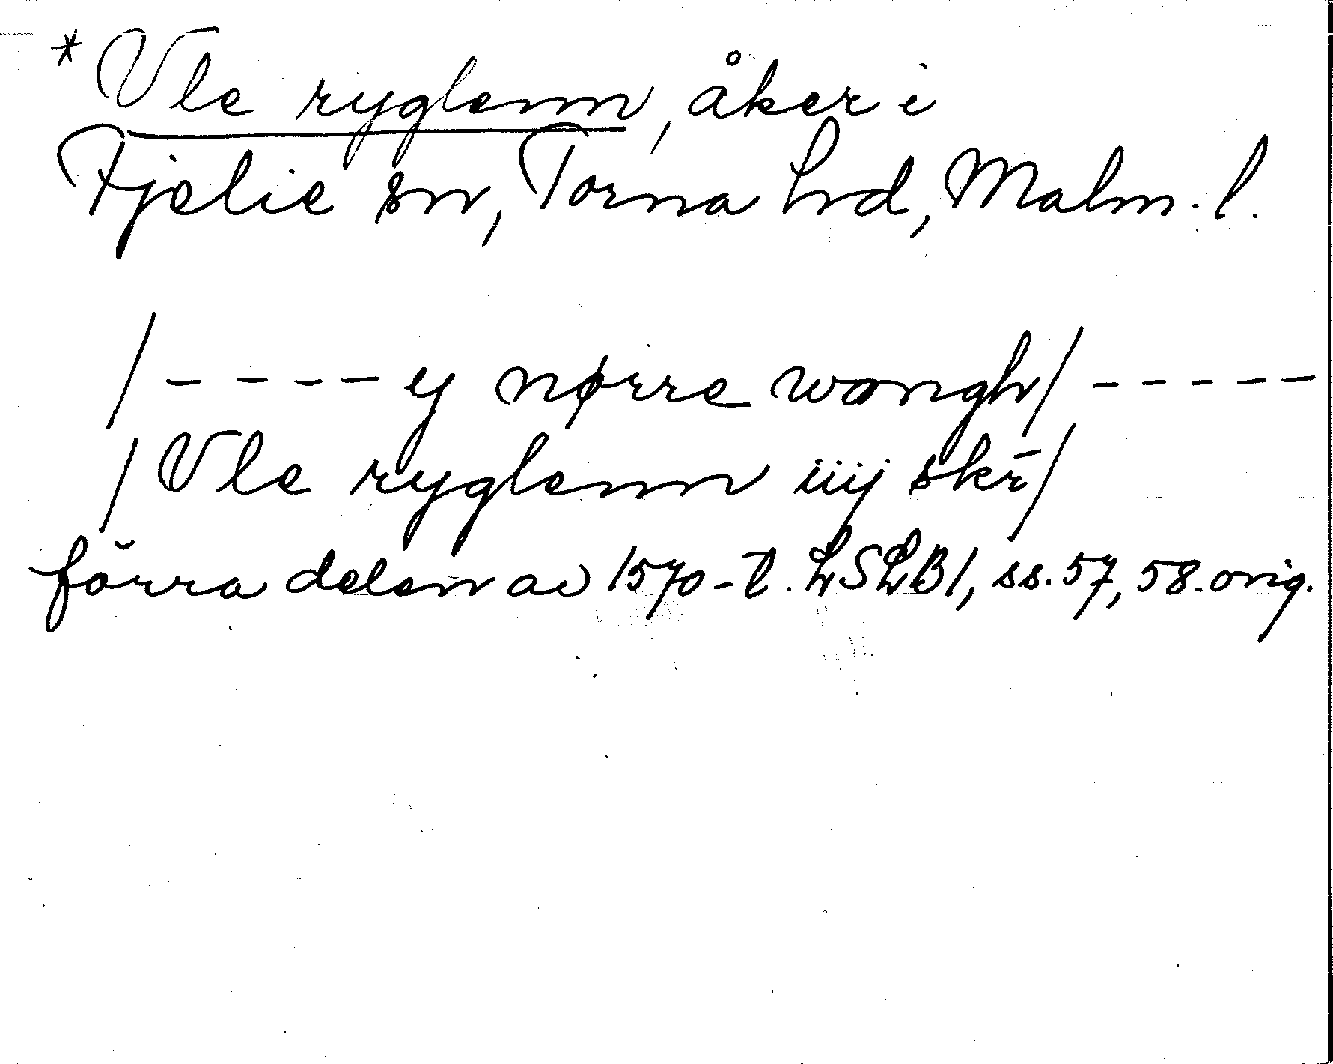 *Vle ryglenn, åker i
Fjelie sn, Torna hd, Malm. l.
/----y nørre wongh/-----
/Vle ryglenn iiij skr̄/
förra delen av 1570-t. LSLB1, ss. 57, 58. orig.